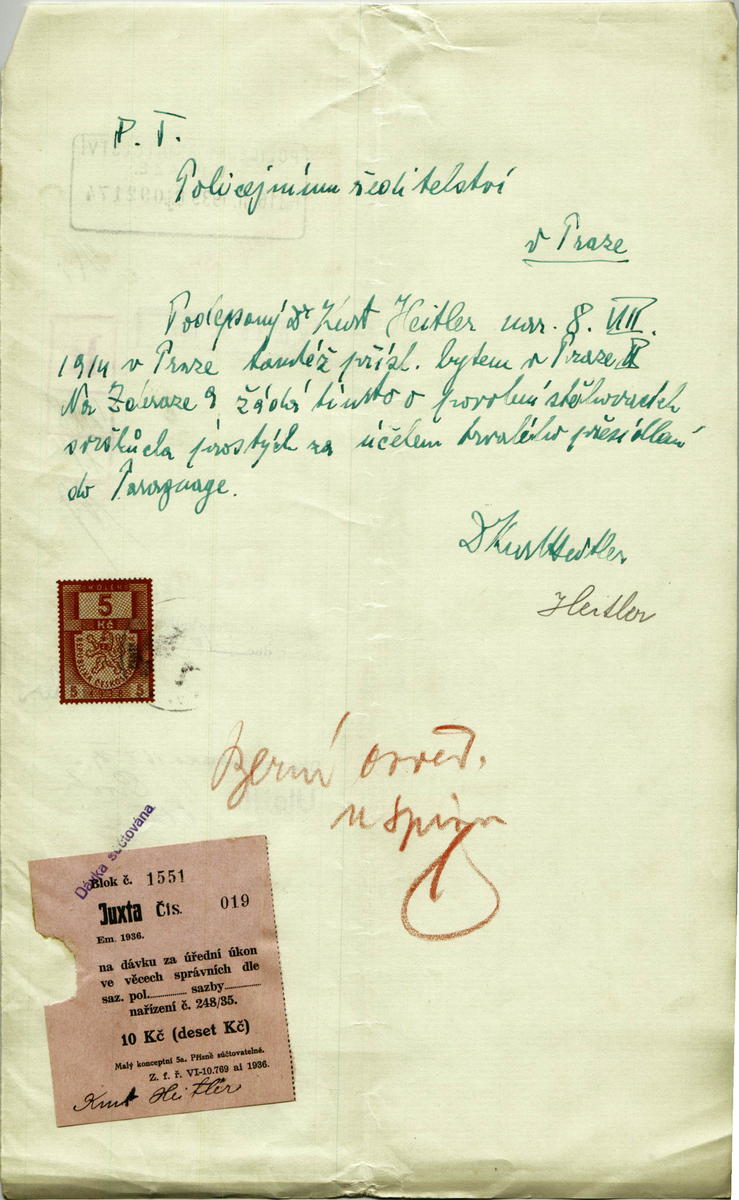 P. T.
Policejnímu ředitelství
v Praze
Podepsaný Dr Kurt Heitler nar. 8. VIII.
1914 v Praze tamtéž přísl. bytem v Praze II
Na Zderaze 9 žádá tímto o povolení stěhovacích
svršků cla prostých za účelem trvalého přesídlení
do Paraguaye.
Dr Kurt Heitler
Heitler
KOLEK
5
Kč
5 5
Berní osvěd.
u spisu
Dávka súčtována
Blok č. 1551
Juxta Čís. 019
Em. 1936.
na dávku za úřední úkon
ve věcech správních dle
saz. pol. sazby
nařízení č. 248/35.
10 Kč (deset Kč)
Malý konceptní 5a. Přísně súčtovatelné.
Z. f. ř. VI-10.769 ai 1936.
Kurt Heitler